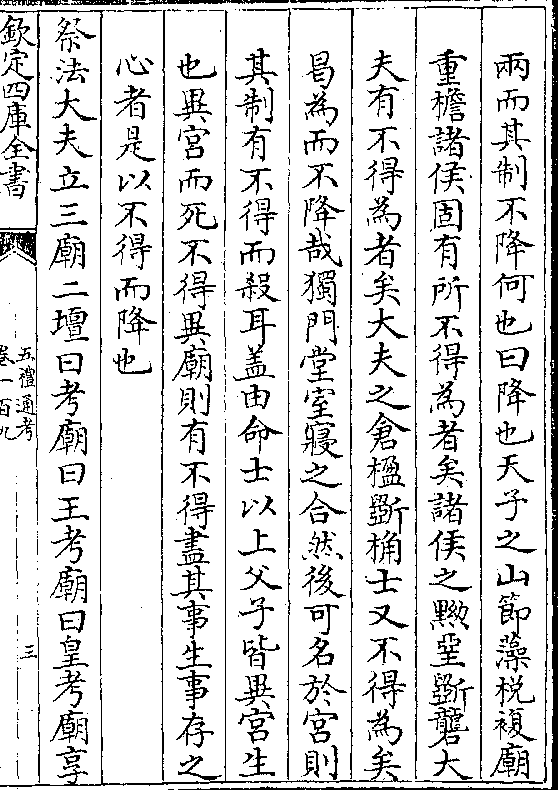 兩而其制不降何也曰降也天子之山節藻梲複廟
重檐諸侯固有所不得為者矣諸侯之黝堊斲礱大
夫有不得為者矣大夫之倉楹斲桷士又不得為矣
曷為而不降哉獨門堂室寢之合然後可名於宮則
其制有不得而殺耳盖由命士以上父子皆異宮生
也異宮而死不得異廟則有不得盡其事生事存之
心者是以不得而降也
祭法大夫立三廟二壇曰考廟曰王考廟曰皇考廟享
欽定四庫全書
五禮通考
卷一百九
三